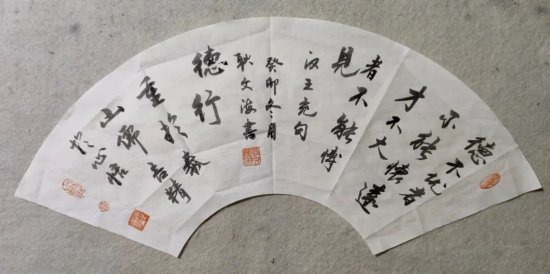 德不优者
不能懷遠
才不大
者不能博
見
汉王充句
癸卯冬月
耿文海書
德行
重於泰
山佛音
於心悟